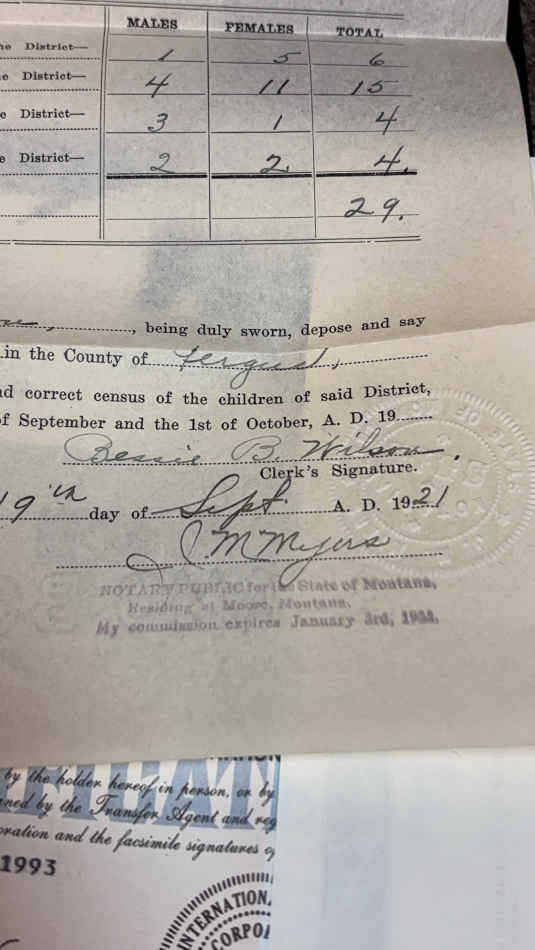 MALES FEMALES TOTAL
he District— 1 5 6
e District— 4 11 15
e District— 3 1 4
e District— 2 2. 4.
29.
, being duly sworn, depose and say
in the County of Fergus,
nd correct census of the children of said District,
of September and the 1st of October, A. D. 19
Bessie B. Wilson.
Clerk's Signature.
19th day of Sept. A. D. 1921
J M Myers
NOTARY PUBLIC for the State of Montana,
Residing at Moore, Montana.
My commission expires January 3rd,
by the holder hereof in person, or by
ned by the Transfer Agent and reg
oration and the facsimile signatures o
1993
INTERNATION
CORPO